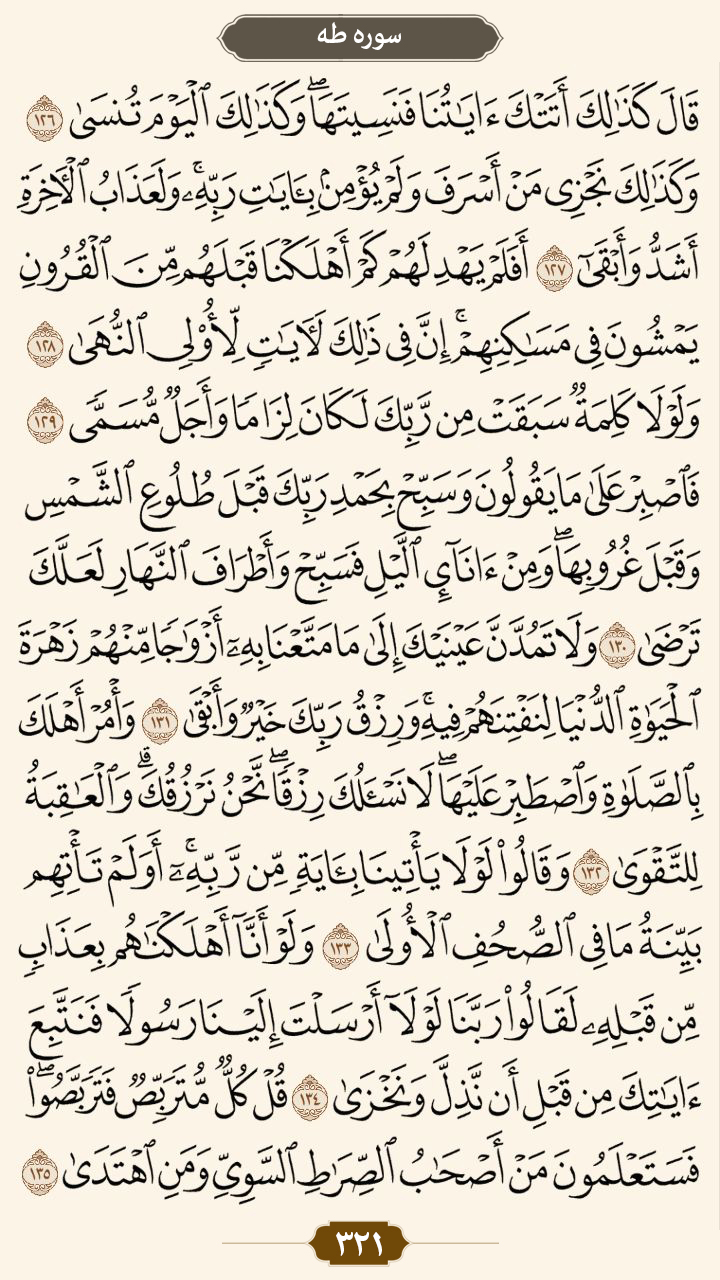 سوره طه
قَالَ كَذَٰلِكَ أَتَتْكَ ءَايَٰتُنَا فَنَسِيتَهَاۖ وَكَذَٰلِكَ ٱلْيَوْمَ تُنسَىٰ ١٢٦
وَكَذَٰلِكَ نَجْزِى مَنْ أَسْرَفَ وَلَمْ يُؤْمِنۢ بِـَٔايَٰتِ رَبِّهِۦۚ وَلَعَذَابُ ٱلْءَاخِرَةِ
أَشَدُّ وَأَبْقَىٰٓ ١٢٧ أَفَلَمْ يَهْدِ لَهُمْ كَمْ أَهْلَكْنَا قَبْلَهُم مِّنَ ٱلْقُرُونِ
يَمْشُونَ فِى مَسَٰكِنِهِمْۚ إِنَّ فِى ذَٰلِكَ لَءَايَٰتٍ لِّأُو۟لِى ٱلنُّهَىٰ ١٢٨
وَلَوْلَا كَلِمَةٌ سَبَقَتْ مِن رَّبِّكَ لَكَانَ لِزَامًا وَأَجَلٌ مُّسَمًّى ١٢٩
فَٱصْبِرْ عَلَىٰ مَا يَقُولُونَ وَسَبِّحْ بِحَمْدِ رَبِّكَ قَبْلَ طُلُوعِ ٱلشَّمْسِ
وَقَبْلَ غُرُوبِهَاۖ وَمِنْ ءَانَآئِ ٱلَّيْلِ فَسَبِّحْ وَأَطْرَافَ ٱلنَّهَارِ لَعَلَّكَ
تَرْضَىٰ ١٣٠ وَلَا تَمُدَّنَّ عَيْنَيْكَ إِلَىٰ مَا مَتَّعْنَا بِهِۦٓ أَزْوَٰجًا مِّنْهُمْ زَهْرَةَ
ٱلْحَيَوٰةِ ٱلدُّنْيَا لِنَفْتِنَهُمْ فِيهِۚ وَرِزْقُ رَبِّكَ خَيْرٌ وَأَبْقَىٰ ١٣١ وَأْمُرْ أَهْلَكَ
بِٱلصَّلَوٰةِ وَٱصْطَبِرْ عَلَيْهَاۖ لَا نَسْـَٔلُكَ رِزْقًاۖ نَّحْنُ نَرْزُقُكَۗ وَٱلْعَٰقِبَةُ
لِلتَّقْوَىٰ ١٣٢ وَقَالُوا۟ لَوْلَا يَأْتِينَا بِـَٔايَةٍ مِّن رَّبِّهِۦٓۚ أَوَلَمْ تَأْتِهِم
بَيِّنَةُ مَا فِى ٱلصُّحُفِ ٱلْأُولَىٰ ١٣٣ وَلَوْ أَنَّآ أَهْلَكْنَٰهُم بِعَذَابٍ
مِّن قَبْلِهِۦ لَقَالُوا۟ رَبَّنَا لَوْلَآ أَرْسَلْتَ إِلَيْنَا رَسُولًا فَنَتَّبِعَ
ءَايَٰتِكَ مِن قَبْلِ أَن نَّذِلَّ وَنَخْزَىٰ ١٣٤ قُلْ كُلٌّ مُّتَرَبِّصٌ فَتَرَبَّصُوا۟ۖ
فَسَتَعْلَمُونَ مَنْ أَصْحَٰبُ ٱلصِّرَٰطِ ٱلسَّوِىِّ وَمَنِ ٱهْتَدَىٰ ١٣٥
٣٢١